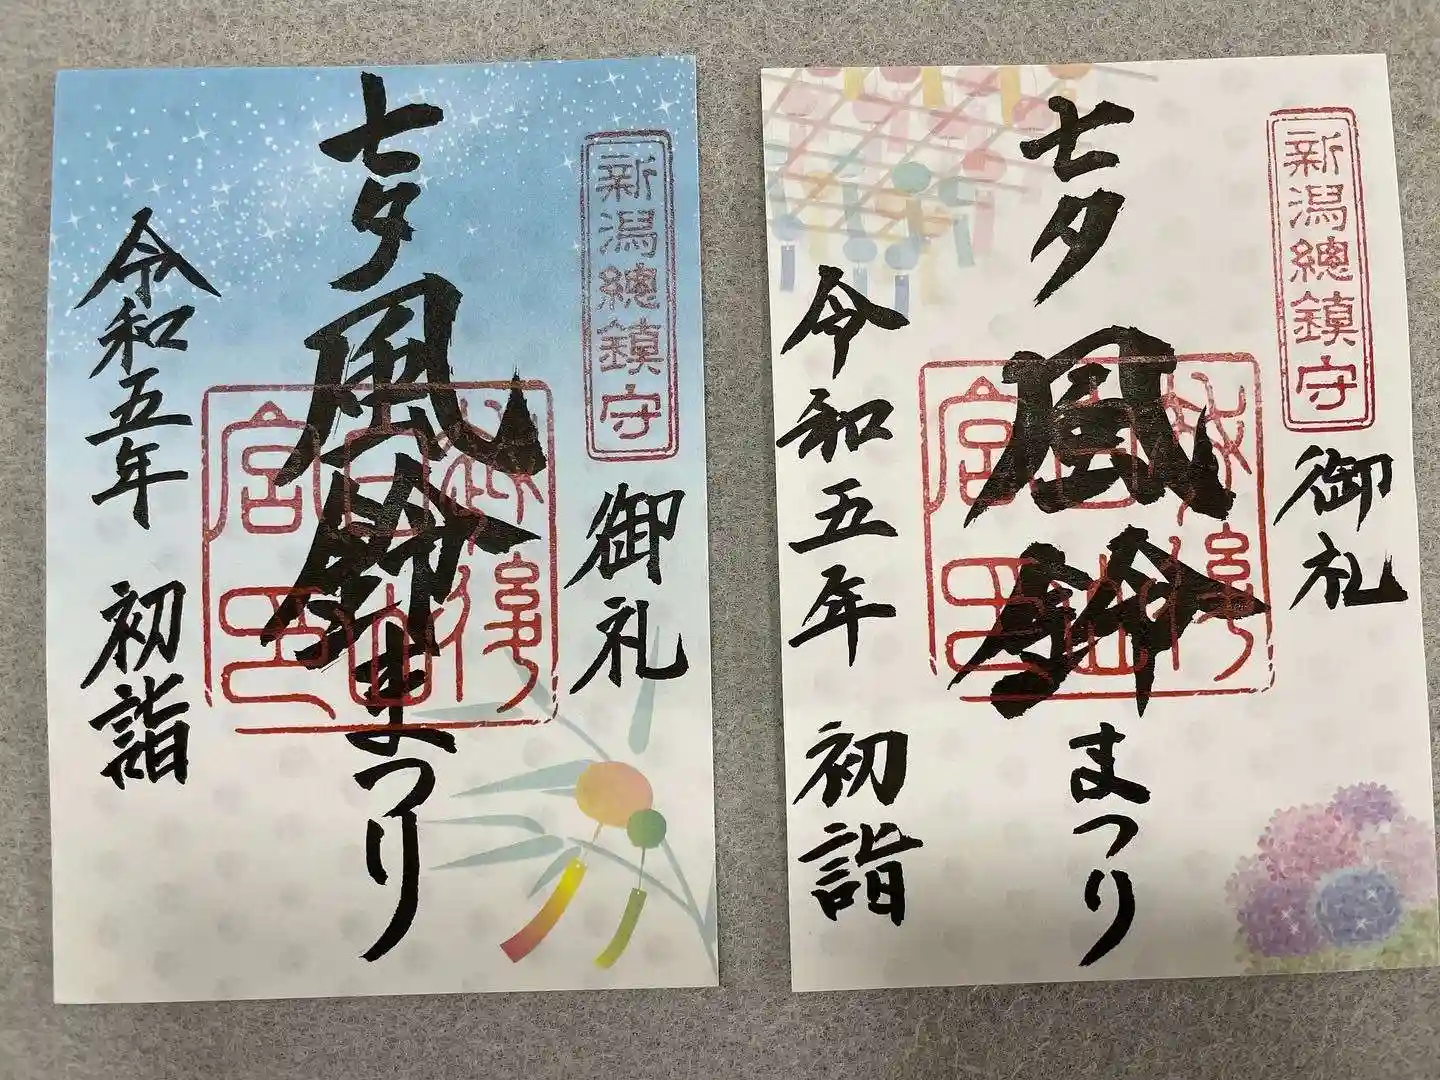 新潟總鎮守
御礼
七夕風鈴まつり
越後
白山
宮印
令和五年 初詣
新潟總鎮守
御礼
七夕風鈴まつり
越後
白山
宮印
令和五年 初詣